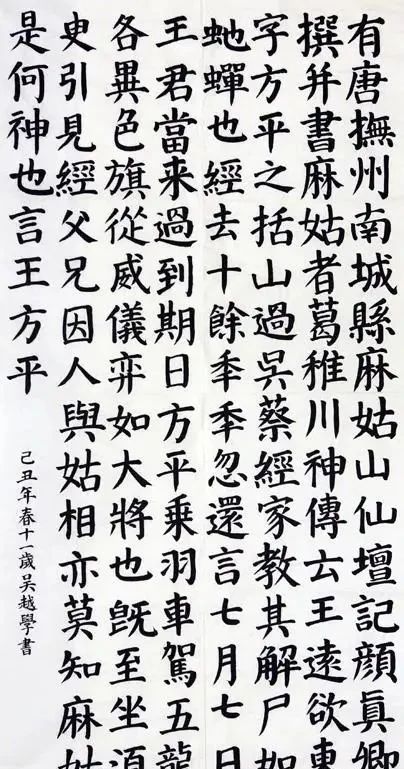 有唐撫州南城縣麻姑山仙壇記顏真卿
撰并書麻姑者葛稚川神傳云王遠欲東
字方平之括山過吳蔡經家教其解尸如
虵蟬也經去十餘秊秊忽還言七月七日
王君當来過到期日方平乗羽車駕五龍
各異色旗從威儀弈如大將也既至坐須
臾引見經父兄因人與姑相亦莫知麻姑
是何神也言王方平
己丑年春十一歲吳越學書